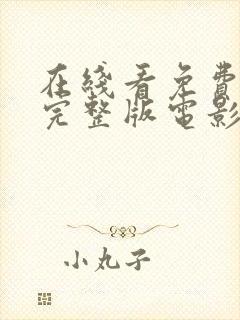 在綫看免費
完整版電影
小丸子